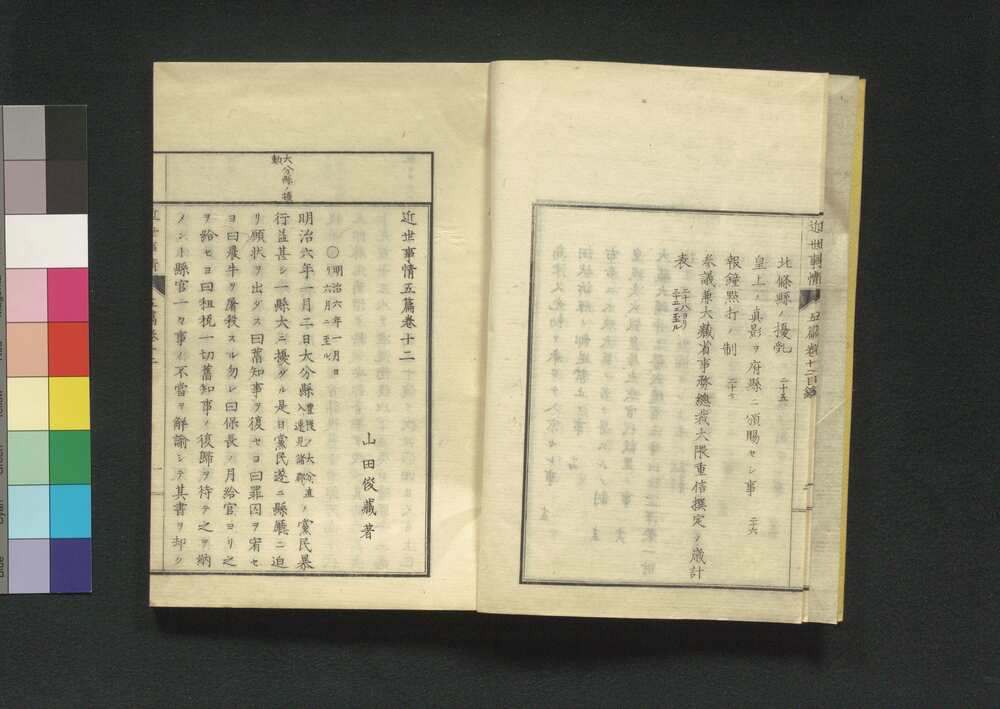 近世事情 五篇卷十二目録
北條縣ノ擾乱 二十五
皇上ノ眞影ヲ府縣ニ頒賜セシ事 二十六
報鐘點打ノ制 二十七
参議兼大藏省事務總裁大隈重信撰定ノ歳計
表 二十八ヨリ三十二ニ至ル
大分縣ノ擾動
近世事情五篇卷十二
山田俊藏著
〇明治六年一月ヨリ六月ニ至ル
明治六年一月二日大分縣ノ黨民暴
行益甚シ一縣大ニ擾タル是日黨民遂ニ縣廳ニ迫
リ願状ヲ出ダス曰舊知事ヲ復セヨ曰罪囚ヲ宥セ
ヨ曰農牛ヲ屠殺スル勿レ曰保長ノ月給官ヨリ之
ヲ給セヨ曰租税一切舊知事ノ復歸ヲ待テ之ヲ納
メント縣官一々事ノ不當ヲ解諭シテ其書ヲ却ク